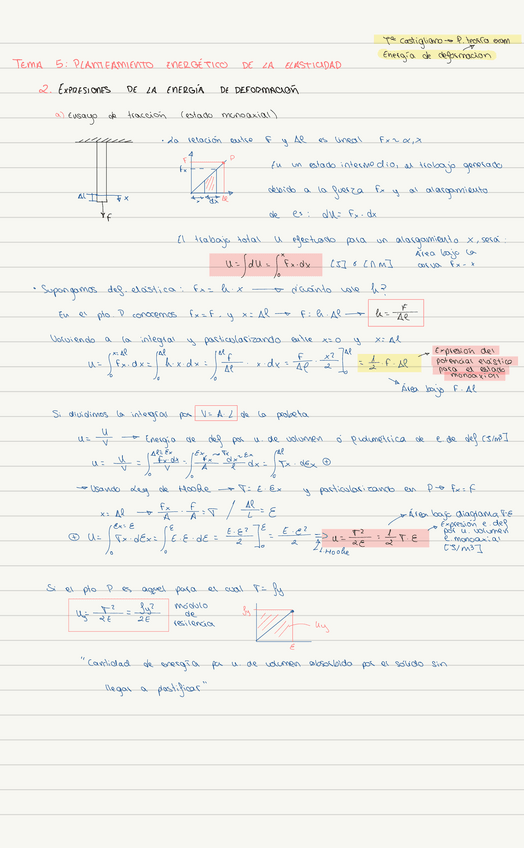 Tª Castigliano → P. teoría exam
Energía de deformacion
TEMA 5: PLANTEAMIENTO ENERGÉTICO DE LA ELASTICIDAD
2. EXPRESIONES DE LA ENERGÍA DE DEFORMACIÓN
a) Ensayo de tracción (estado monoaxial)
· La relación entre F y Δl es lineal Fx = α·x
En un estado intermedio, el trabajo generado
debido a la fuerza Fx y al alargamiento
dx es: dU = Fx · dx
El trabajo total U efectuado para un alargamiento x, será:
U = ∫dU = ∫₀ˣ Fx·dx [J] o [N·m]
Área bajo la
curva Fx-x
· Supongamos def. elástica: Fx = k·x → ¿Cuánto vale k?
En el pto P conocemos Fx = F y x = Δl → F = k·Δl → k = F/Δl
Volviendo a la integral y particularizando entre x=0 y x=Δl
U = ∫₀^(x=Δl) Fx·dx = ∫₀^Δl k·x dx = ∫₀^Δl F/Δl · x dx = F/Δl · x²/2 ]₀^Δl = 1/2 · F · Δl
Expresión del
potencial elástico
para el estado
monoaxial
Área bajo F-Δl
Si dividimos la integral por V = A·L de la probeta
u = U/V → Energía de def por u. de volumen ó p.volumétrica de e. de def [J/m³]
→ Usando Ley de Hooke → σ = E·εx y particularizando en P → Fx = F
x = Δl → Fx/A = F/A = σ / Δl/L = ε
⊕ u = ∫₀^(εx=ε) σx·dεx = ∫₀^ε E·ε·dε = E·ε²/2 ]₀^ε = E·ε²/2 ⇒ u = σ²/2E = 1/2 σ·ε
L. Hooke
Área bajo diagrama σ-ε
Expresión e. def
por u. volumen
e. monoaxial
[J/m³]
Si el pto P es aquel para el cual σ = fy
uy = σ²/2E = fy²/2E
módulo
de
resilencia
fy
uy
ε
"Cantidad de energía por u de volumen absorbida por el sólido sin
llegar a plastificar"